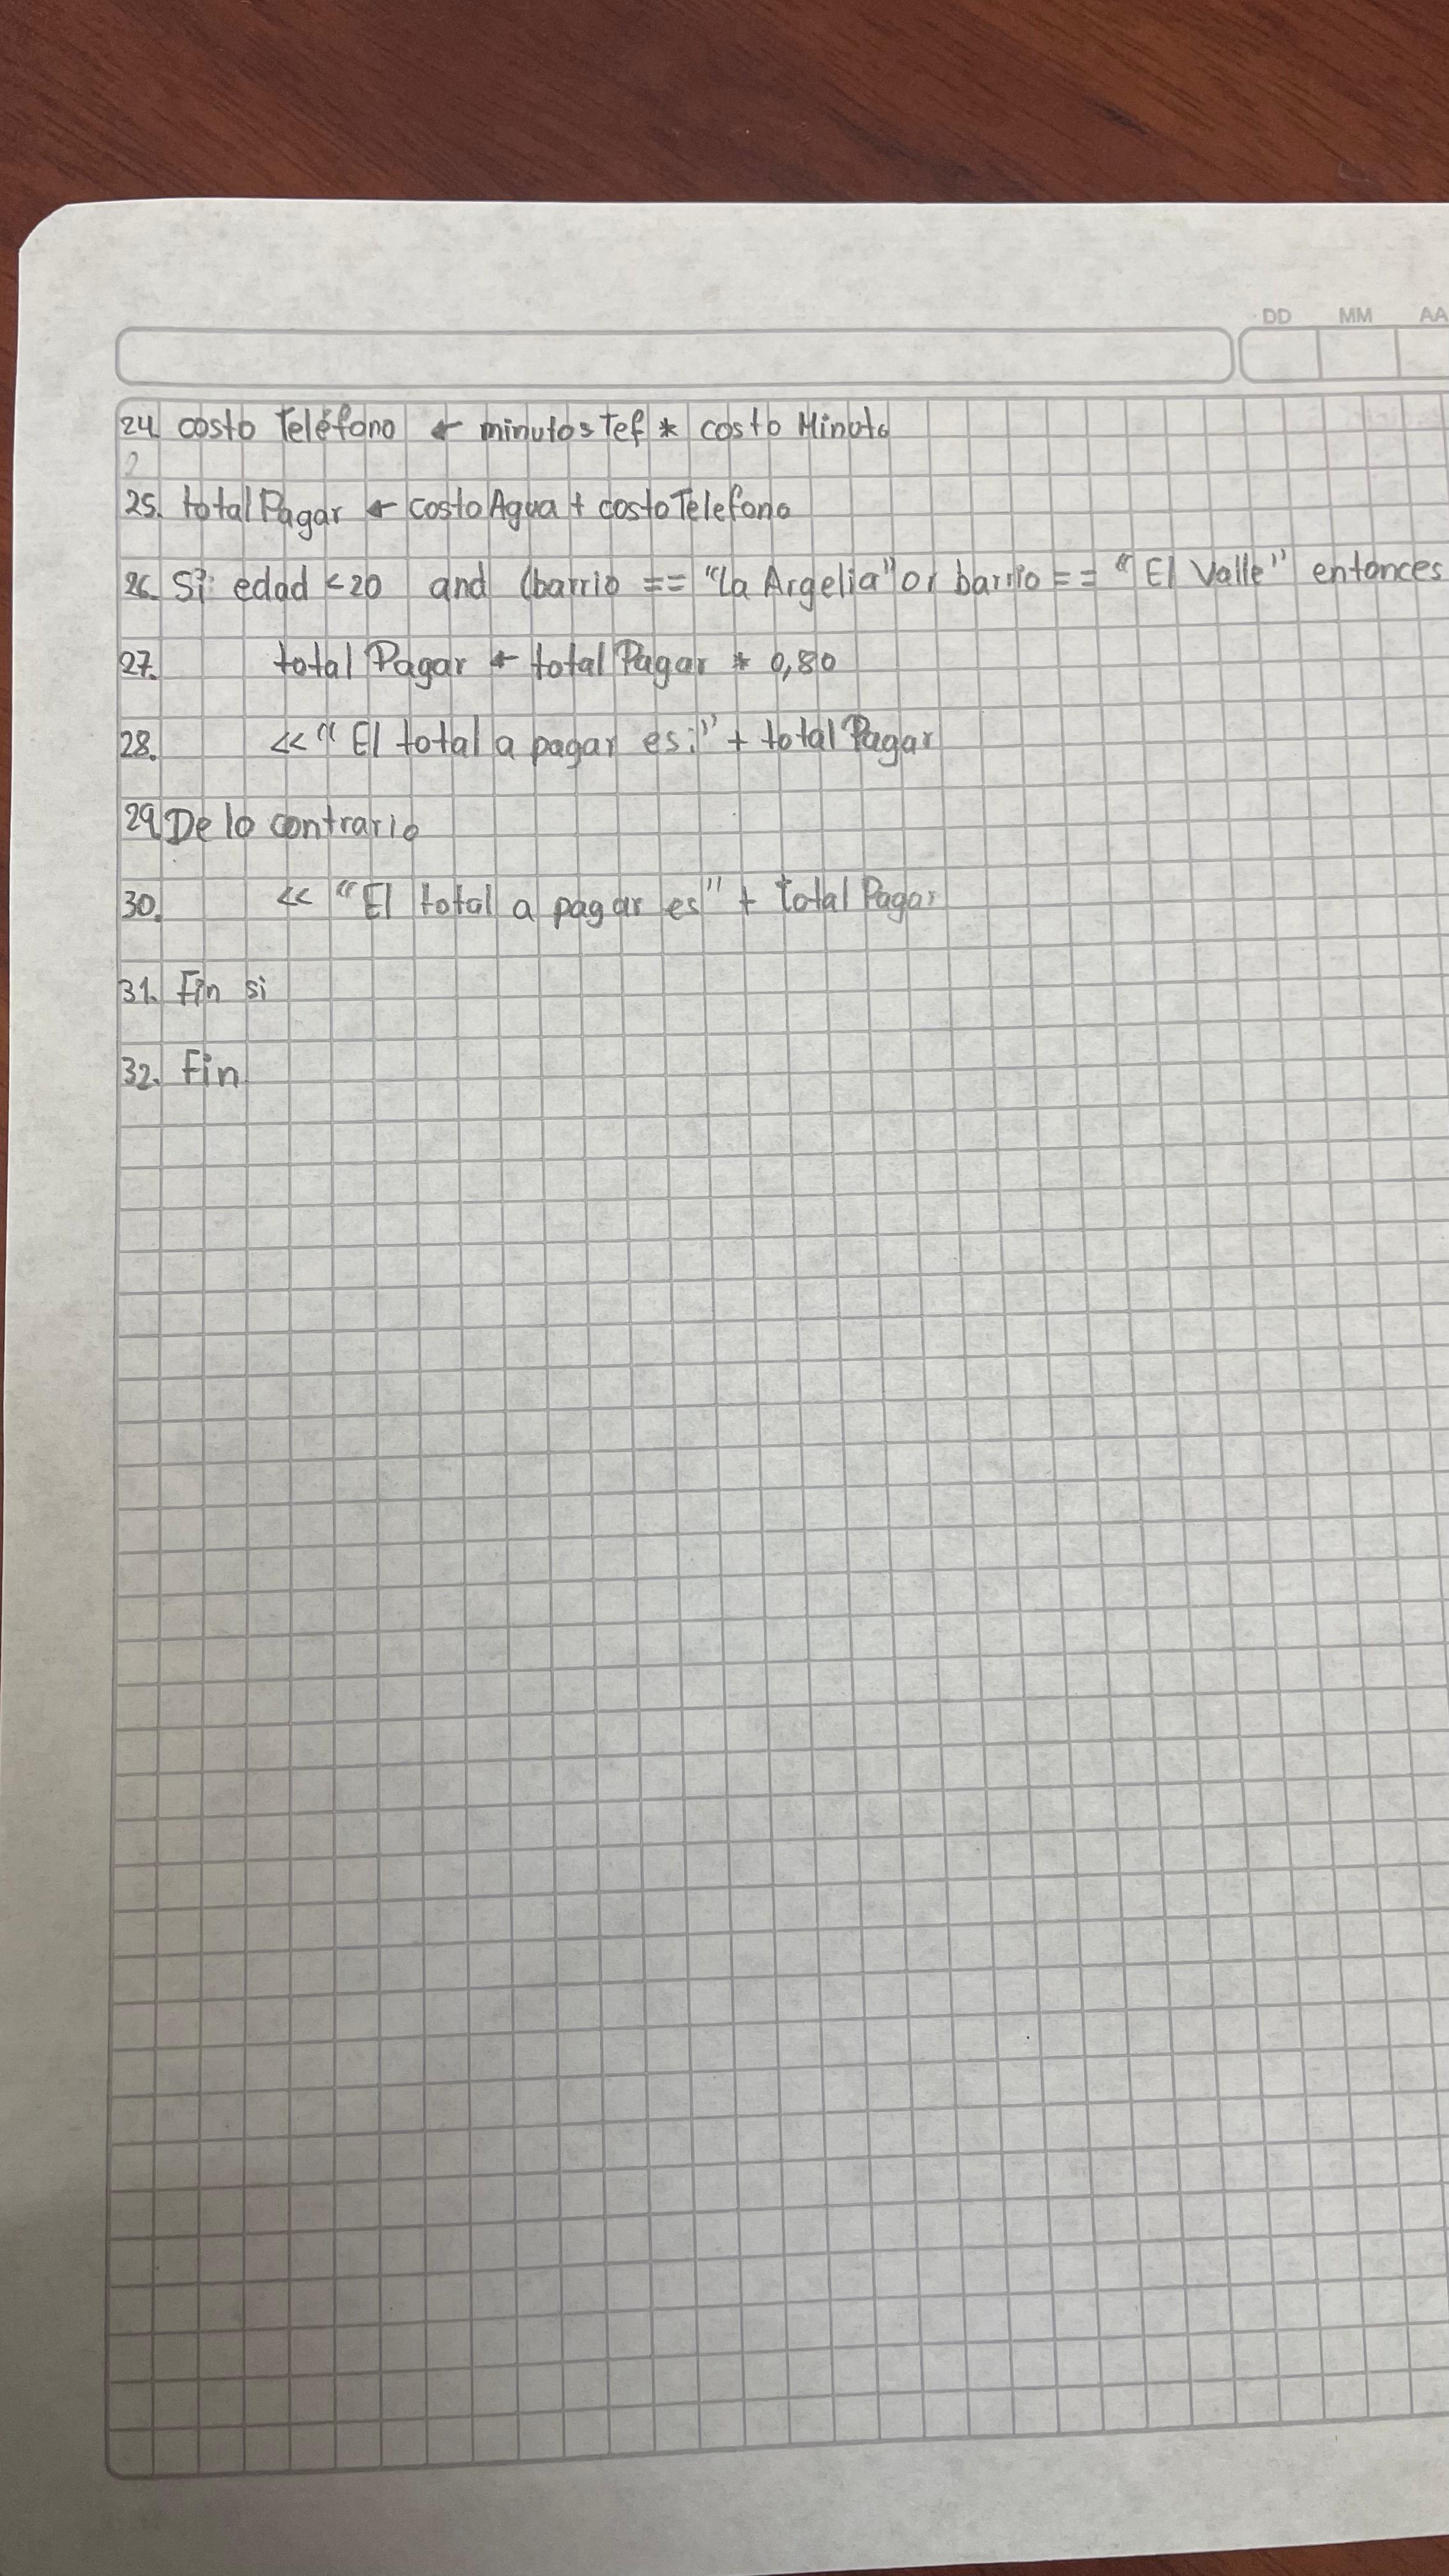 DD MM AA
24. costo Teléfono ← minutosTef * costo Minuto
2
25. totalPagar ← costoAgua + costoTelefono
26. Si edad <20 and (barrio == "La Argelia" or barrio == "El Valle" entonces
27. total Pagar ← total Pagar * 0,80
28. << "El total a pagar es:" + total Pagar
29. De lo contrario
30. << "El total a pagar es" + total Pagar
31. Fin si
32. Fin